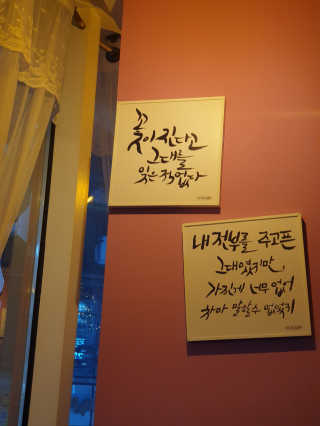 꽃
이 진다고
그대를
잊은 적 없다
내 전부를 주고픈
그대였지만,
가진게 너무 없어
차마 말할 수 없었지